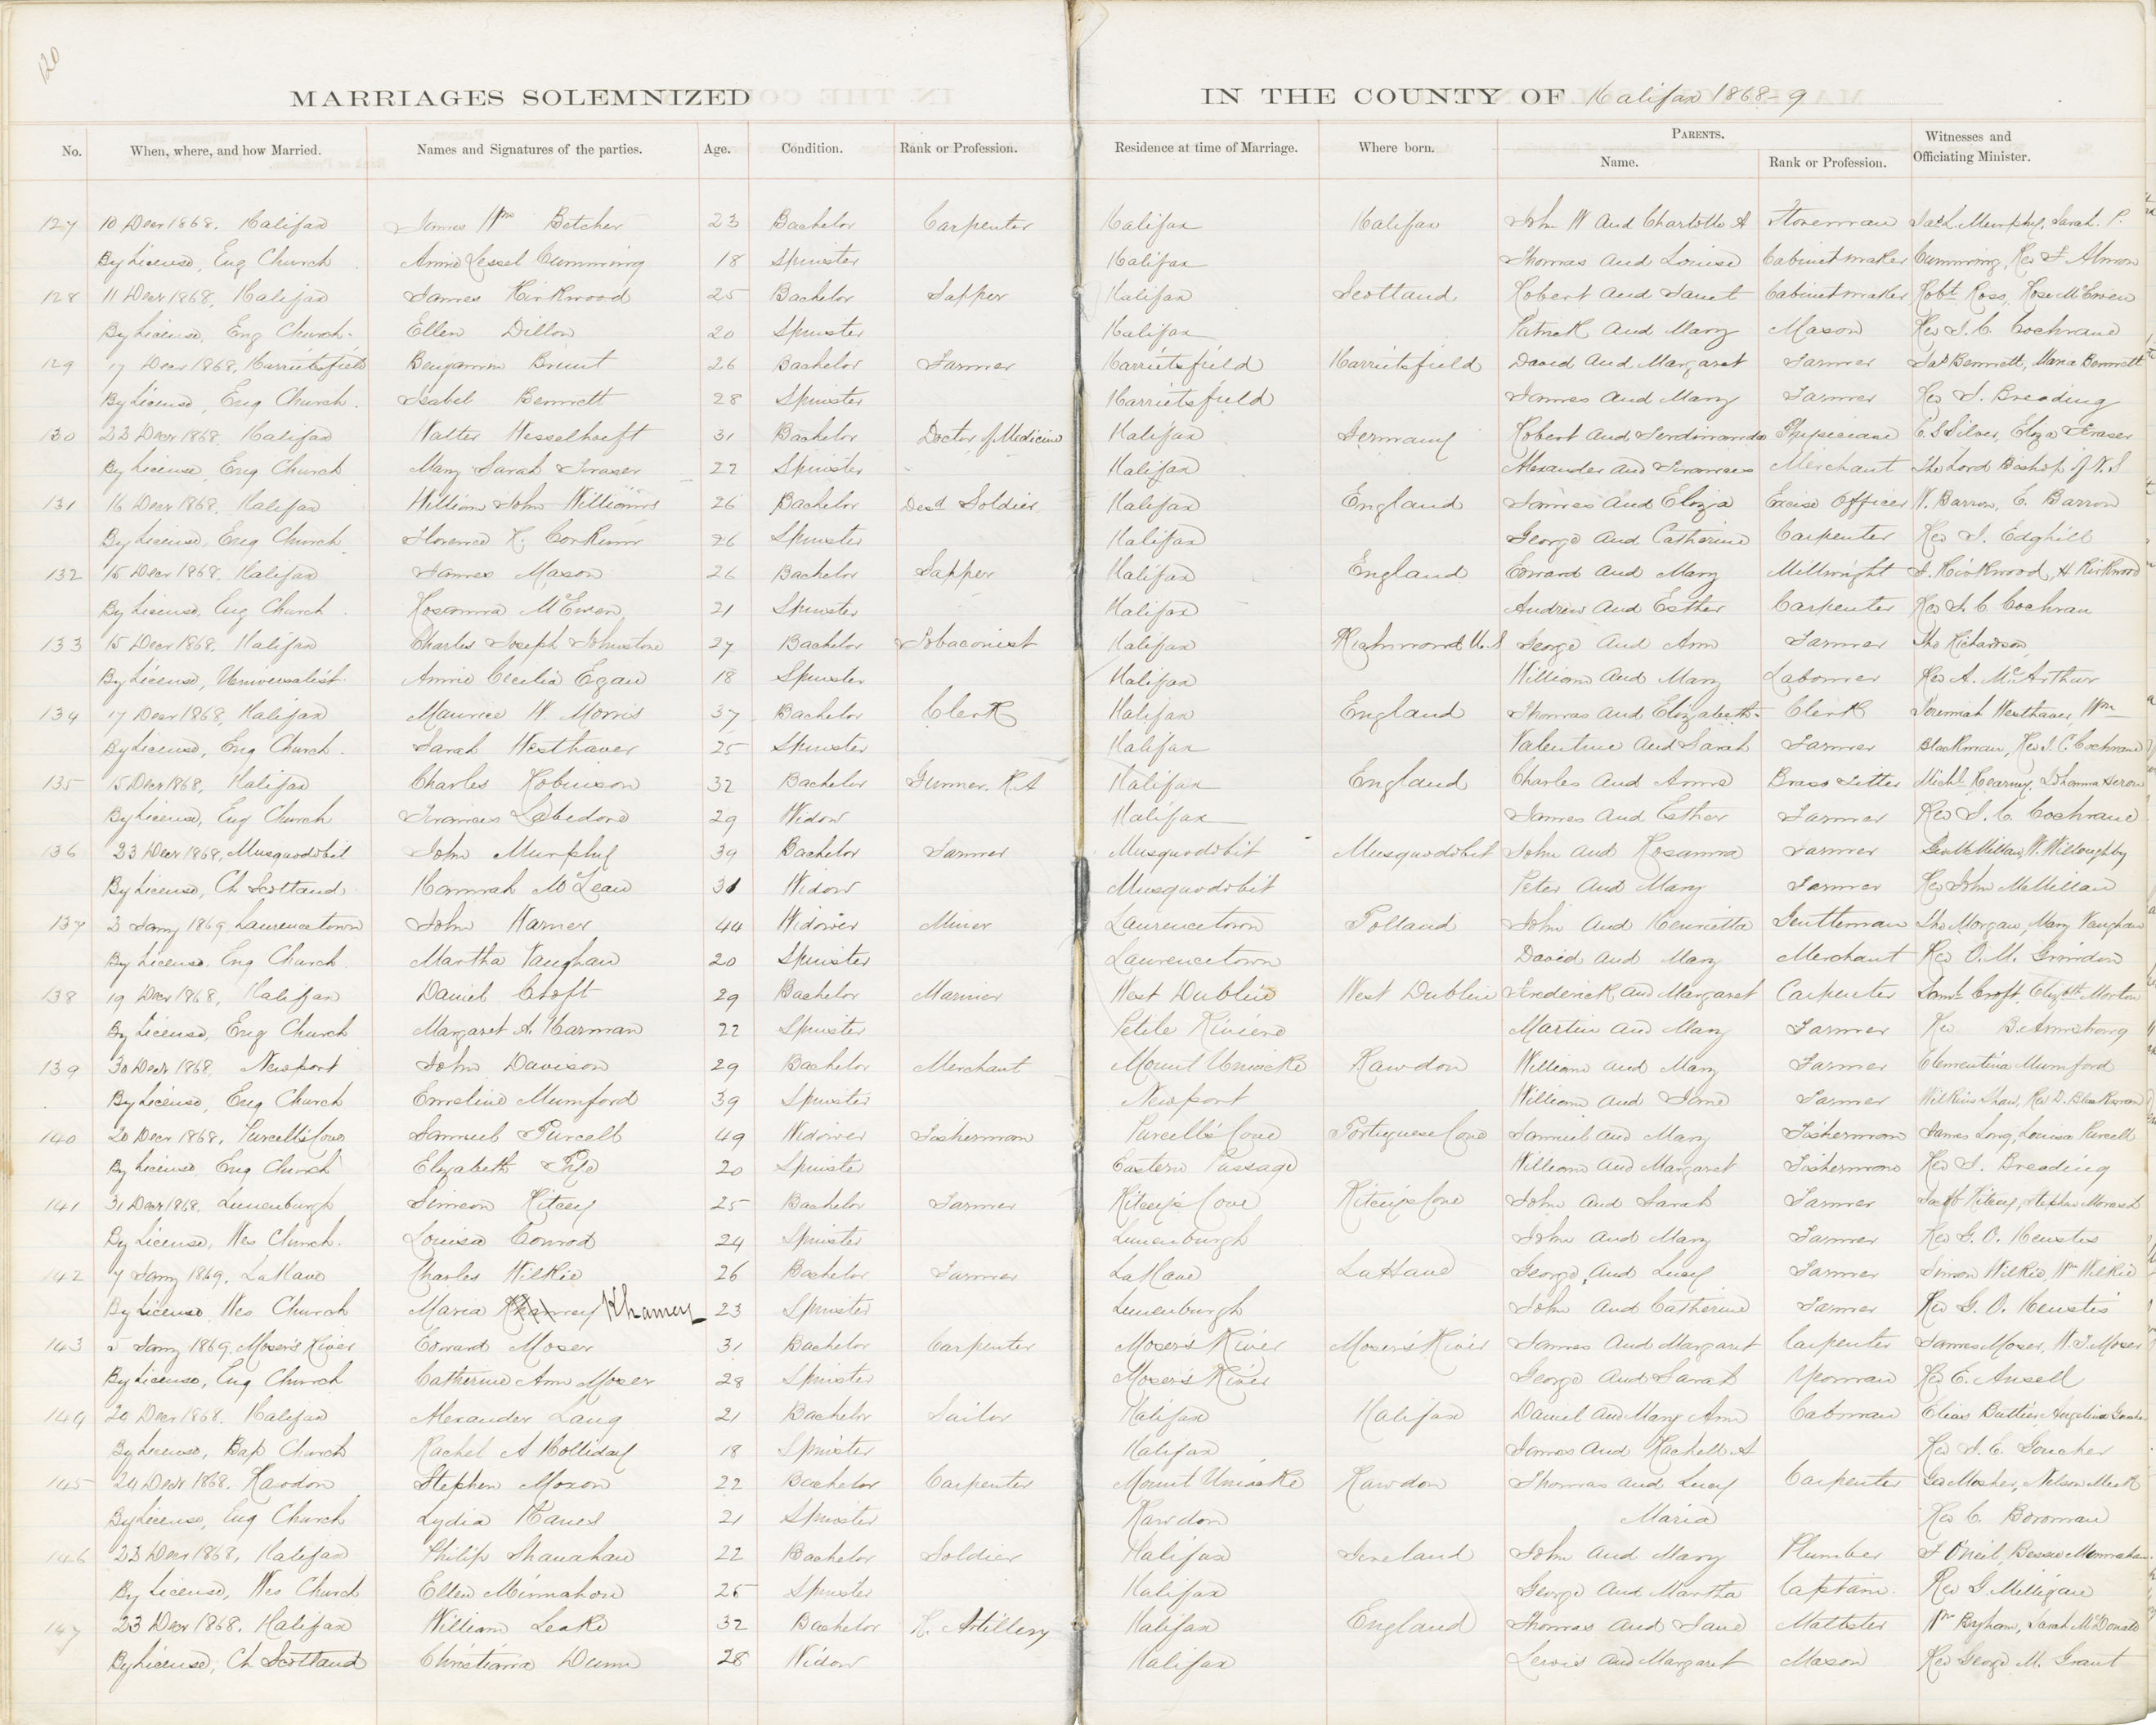 120
MARRIAGES SOLEMNIZED IN THE COUNTY OF Halifax 1868-9
No. When, where, and how Married. Names and Signatures of the parties. Age. Condition. Rank or Profession. Residence at time of Marriage. Where born. PARENTS. Name. Rank or Profession. Witnesses and Officiating Minister.
127 10 Decr 1868. Halifax James Wm Betcher 23 Bachelor Carpenter Halifax Halifax John W and Charlotte A Storeman Jas L. Murphy, Sarah P.
By License, Eng Church Annie Lessel Cumming 18 Spinster Halifax Thomas and Louisa Cabinetmaker Cumming, Rev F Almon
128 11 Decr 1868, Halifax James Kirkwood 25 Bachelor Sapper Halifax Scotland Robert and Janet Cabinetmaker Robt Ross, Rose McEwen
By License, Eng Church. Ellen Dillon 20 Spinster Halifax Patrick and Mary Mason Rev J. C. Cochrane
129 17 Decr 1868, Harrietsfield Benjamin Brunt 26 Bachelor Farmer Harrietsfield Harrietsfield David and Margaret Farmer Jas Bennett, Maria Bennett
By License, Eng Church. Isabel Bennett 28 Spinster Harrietsfield James and Mary Farmer Rev J. Breading
130 23 Decr 1868. Halifax Walter Wesselhoeft 31 Bachelor Doctor of Medicine Halifax Germany Robert and Ferdinanda Physician C. S Silver, Eliza Fraser
By License, Eng Church Mary Sarah Fraser 22 Spinster Halifax Alexander and Frances Merchant The Lord Bishop of N. S
131 16 Decr 1868. Halifax William John Williams 26 Bachelor Desd Soldier Halifax England James and Eliza Excise Officer W. Barron, C. Barron
By License, Eng Church. Florence K. Corkum 26 Spinster Halifax George and Catherine Carpenter Rev J. Edghill
132 15 Decr 1868. Halifax James Mason 26 Bachelor Sapper Halifax England Edward and Mary Millwright J. Kirkwood, H Kirkwood
By License, Eng Church. Rosanna McEwen 21 Spinster Halifax Andrew and Esther Carpenter Rev J. C Cochran
133 15 Decr 1868. Halifax Charles Joseph Johnstone 27 Bachelor Tobaconist Halifax Richmond U.S George and Ann Farmer Tho Richardson,
By License, Universalist. Annie Cecilia Egan 18 Spinster Halifax William and Mary Labourer Rev A. McArthur
134 17 Decr 1868, Halifax Maurice W. Morris 37 Bachelor Clerk Halifax England Thomas and Elizabeth Clerk Jeremiah Westhaver, Wm
By License, Eng Church. Sarah Westhaver 25 Spinster Halifax Valentine and Sarah Farmer Blackman, Rev J. C. Cochrane
135 15 Decr 1868, Halifax Charles Robinson 32 Bachelor Gunner. R.A Halifax England Charles and Anna Brass Fitter Michl Kearney, Johanna Heron
By License, Eng Church Frances Labedore 29 Widow Halifax James and Esther Farmer Rev J. C. Cochrane
136 23 Decr 1868, Musquodobit John Murphy 39 Bachelor Farmer Musquodobit Musquodobit John and Rosanna Farmer Geo McMillan, W. Willoughby
By License, Ch Scotland Hannah McLean 31 Widow Musquodobit Peter and Mary Farmer Rev John McMillan
137 3 Jany 1869. Laurencetown John Warner 44 Widower Miner Laurencetown Polland John and Henrietta Gentleman Tho Morgan, Mary Vaughan
By License, Eng Church Martha Vaughan 20 Spinster Laurencetown David and Mary Merchant Rev O. M. Grindon
138 19 Decr 1868, Halifax Daniel Croft 29 Bachelor Mariner West Dublin West Dublin Frederick and Margaret Carpenter Saml Croft, Elizbth Morton
By License, Eng Church Margaret A. Harman 22 Spinster Petite Riviere Martin and Mary Farmer Rev B. Armstrong
139 30 Decr 1868. Newport John Davison 29 Bachelor Merchant Mount Uniacke Rawdon William and Mary Farmer Clementina Mumford
By License, Eng Church Emeline Mumford 39 Spinster Newport William and Jane Farmer Wilkins Shaw, Rev D. Blackwood
140 20 Decr 1868, Purcell's Cove Samuel Purcell 49 Widower Fisherman Purcell's Cove Portuguese Cove Samuel and Mary Fisherman James Long, Louisa Purcell
By License, Eng Church Elizabeth Pye 20 Spinster Eastern Passage William and Margaret Fisherman Rev J. Breading
141 31 Decr 1868, Lunenburgh Simeon Ritcey 25 Bachelor Farmer Ritcey's Cove Ritcey's Cove John and Sarah Farmer Jacob Ritcey, Stephen Morash
By License, Wes Church. Louisa Conrod 24 Spinster Lunenburgh John and Mary Farmer Rev G. O. Heustis
142 7 Jany 1869. LaHave Charles Wilkie 26 Bachelor Farmer LaHave LaHave George and Lucy Farmer Simon Wilkie, Wm Wilkie
By License Wes Church. Maria Khamey 23 Spinster Lunenburgh John and Catherine Farmer Rev G. O. Heustis
143 5 Jany 1869. Moser's River Edward Moser 31 Bachelor Carpenter Moser's River Moser's River James and Margaret Carpenter James Moser, H. J. Moser
By License, Eng Church Catherine Ann Moser 28 Spinster Moser's River George and Sarah Yeoman Rev E. Ansell
144 20 Decr 1868. Halifax Alexander Lang 21 Bachelor Sailor Halifax Halifax Daniel and Mary Ann Cabman Elias Buttler, Angelina
By License, Bap Church Rachel A Holliday 18 Spinster Halifax James and Rachell A Rev J. E. Goucher
145 24 Decr 1868. Rawdon Stephen Moxon 22 Bachelor Carpenter Mount Uniacke Rawdon Thomas and Lucy Carpenter Geo Mosher, Nelson Meek
By License, Eng Church Lydia Hanes 21 Spinster Rawdon Maria Rev C. Bowman
146 23 Decr 1868, Halifax Philip Shanahan 22 Bachelor Soldier Halifax Ireland John and Mary Plumber F O'Neil, Bessie Minnahan
By License, Wes Church Ellen Minnahan 25 Spinster Halifax George and Martha Captain. Rev G. Milligan
147 23 Decr 1868. Halifax William Leake 32 Bachelor R. Artillery Halifax England Thomas and Jane Maltster Wm Bryham, Sarah McDonald
By License, Ch Scotland Christiana Dunn 28 Widow Halifax Lewis and Margaret Mason Rev George M. Grant